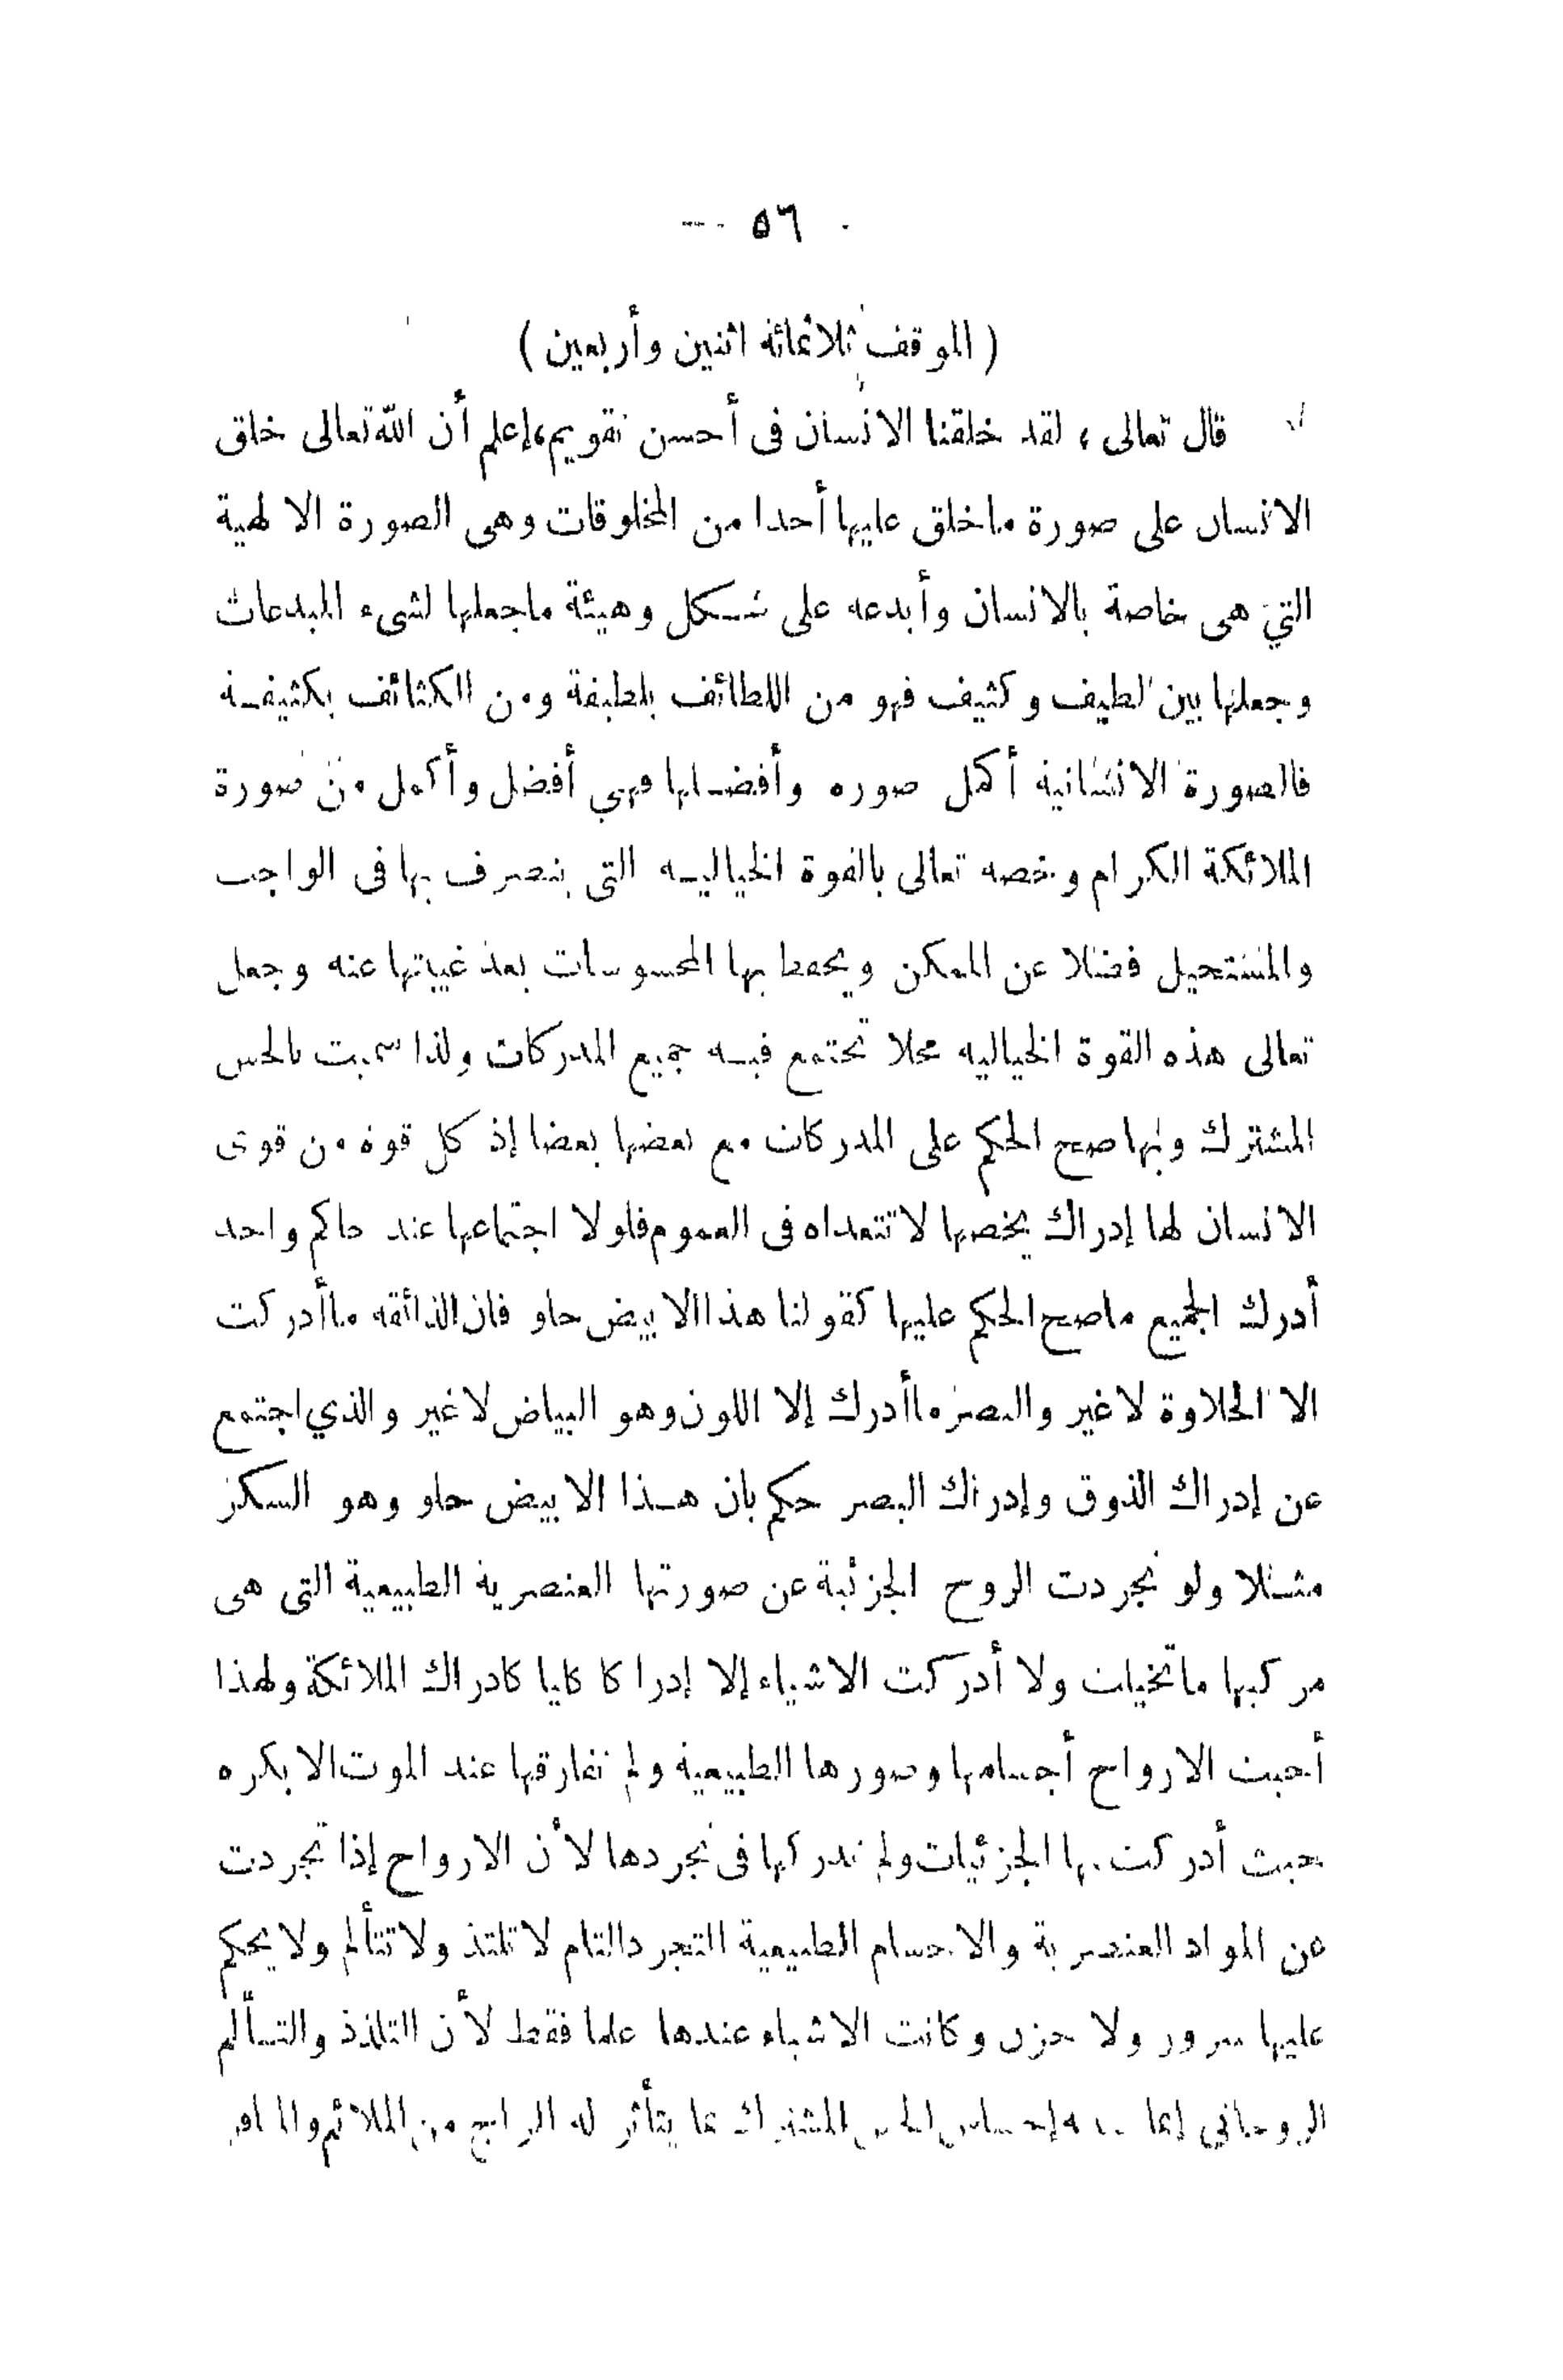 ٥٦
( الموقف ثلاثمائة اثنين وأربعين )
قال تعالى ، لقد خلقنا الانسان فى أحسن تقويم، إعلم أن الله تعالى خلق
الانسان على صورة ماخلق عليها أحدا من المخلوقات وهى الصورة الالهية
التي هى خاصة بالانسان وأبدعه على شكل وهيئة ماجعلها لشىء المبدعات
وجعلها بين لطيف وكثيف فهو من اللطائف بلطيفة ومن الكثائف بكثيفة
فالصورة الانسانية أكمل صوره وأفضلها فهى أفضل وأكمل من صورة
الملائكة الكرام وخصه تعالى بالقوة الخياليه التى يتصرف بها فى الواجب
والمستحيل فضلا عن الممكن ويحفظ بها المحسوسات بعد غيبتها عنه وجعل
تعالى هذه القوة الخياليه محلا تجتمع فيه جميع المدركات ولذا سميت بالحس
المشترك وبها صح الحكم على المدركات مع بعضها بعضا إذ كل قوة من قوى
الانسان لها إدراك يخصها لا تتعداه فى العموم فلولا اجتماعها عند حاكم واحد
أدرك الجميع ماصح الحكم عليها كقولنا هذا الابيض حلو فان الذائقه ماأدركت
الا الحلاوة لاغير والبصر ماأدرك إلا اللون وهو البياض لاغير والذي اجتمع
عن إدراك الذوق وإدراك البصر حكم بان هذا الابيض حلو وهو السكر
مثلا ولو تجردت الروح الجزئية عن صورتها العنصرية الطبيعية التى هى
مركبها ماتخيلت ولا أدركت الاشياء إلا إدراكا كليا كادراك الملائكة ولهذا
أحبت الارواح أجسامها وصورها الطبيعية ولم تفارقها عند الموت الا بكره
حيث أدركت بها الجزئيات ولم تدركها فى تجردها لأن الارواح إذا تجردت
عن المواد العنصرية والاجسام الطبيعية التجرد التام لاتلتذ ولا تتألم ولا يحكم
عليها سرور ولا حزن وكانت الاشياء عندها علما فقط لأن التلذذ والتألم
الروحانى إنما إحساس الحس المشترك بما يتأثر له المزاج من الملائم